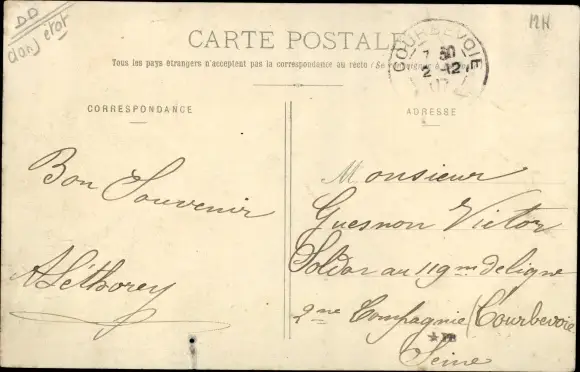 DD
dans etot
12H
CARTE POSTALE
Tous les pays étrangers n'acceptent pas la correspondance au recto
COURBEVOIE
7 30
2 -12
07
CORRESPONDANCE
ADRESSE
Bon Souvenir
A Léthorey
Monsieur
Guesnon Victor
Soldat au 119me de ligne
2me Compagnie (Courbevoie
Seine